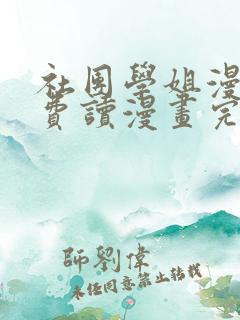 社團學姐漫
費讀漫畫完
師劉偉
未经同意禁止转载